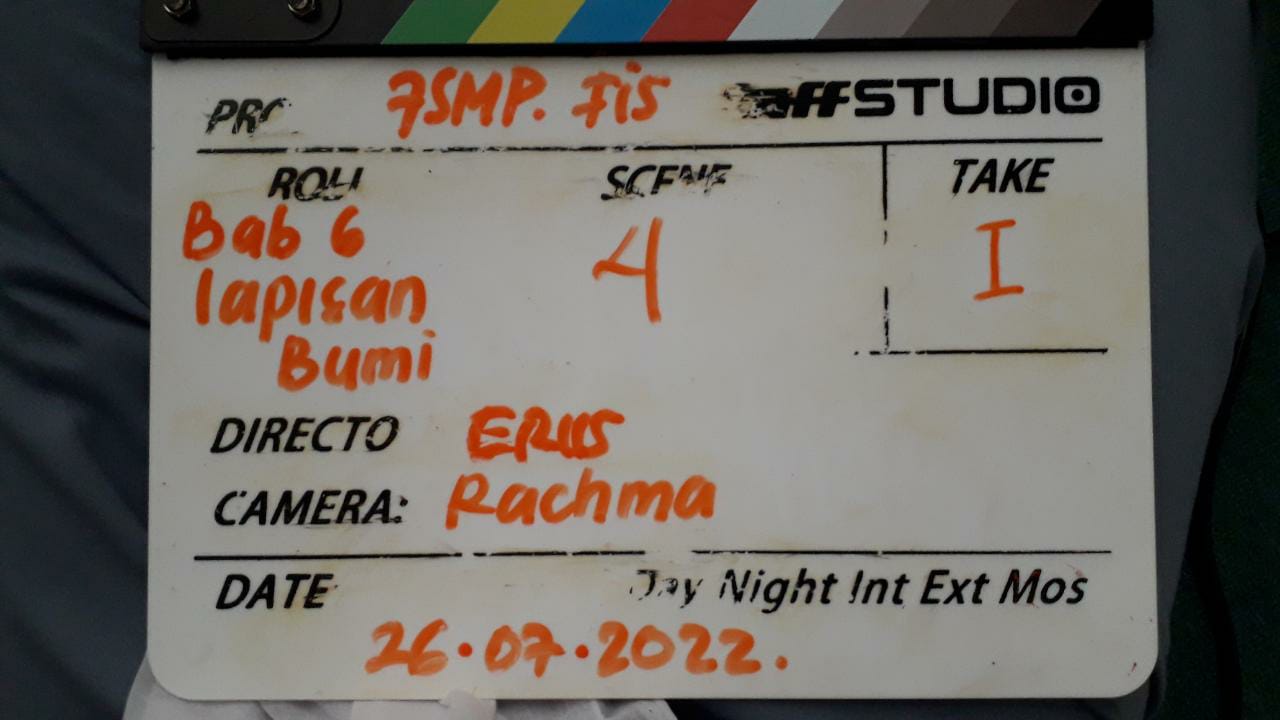 7SMP. Fis STUDIO
SCENE TAKE
Bab 6 4 I
lapisan
Bumi
DIRECTO
CAMERA: Rachma
DATE Day Night Int Ext Mos
26.07.2022.